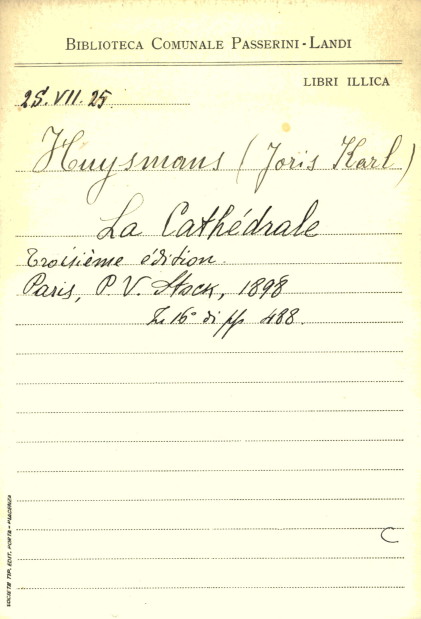 BIBLIOTECA COMUNALE PASSERINI-LANDI
LIBRI ILLICA
25.VII.25.
Huysmans (Joris Karl)
La Cathédrale
Troisième édition.
Paris, P. V. Stock, 1898
In 16° di pp 488.
C
SOCIETÀ TIP. EDIT. PORTA - PIACENZA